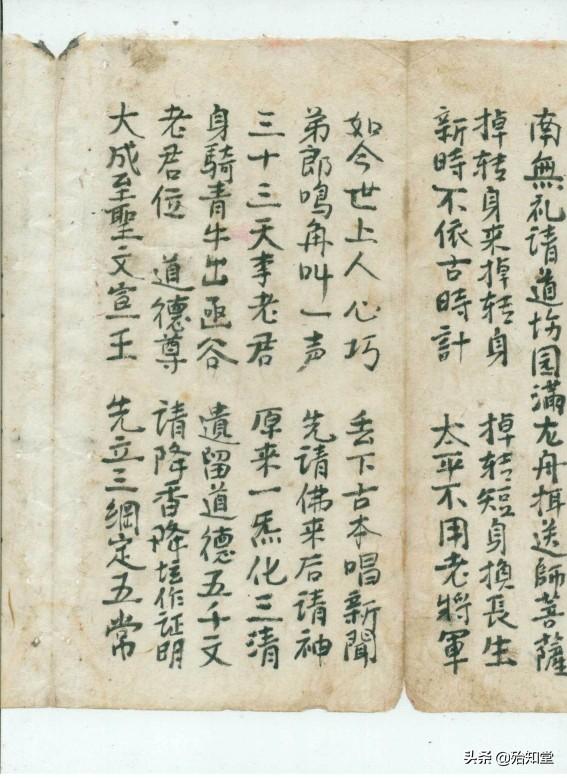 南無礼請道场园满龙舟揖送師菩薩
掉转身来掉转身 掉转短身換長生
新時不依古時計 太平不用老將軍
如今世上人心巧 丢下古本唱新聞
弟郎鳴角叫一声 先請佛来后請神
三十三天李老君 原来一炁化三清
身騎青牛出函谷 遺留道德五千文
老君位 道德尊 請降香降坛作证明
大成至聖文宣王 先立三綱定五常
头条 @殆知堂